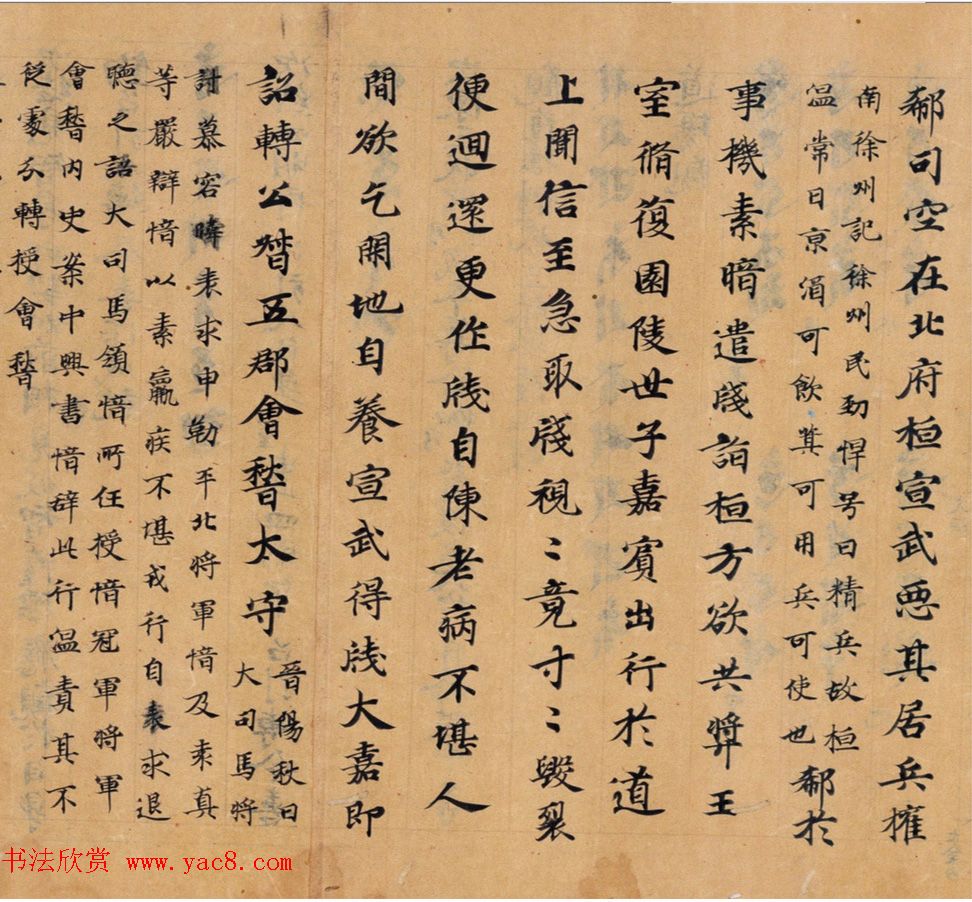 郗司空在北府桓宣武惡其居兵權
南徐州記徐州民勁悍号曰精兵故桓
温常日京口可飲箕可用兵可使也郗於
事機素暗遣牋詣桓方欲共弉王
室脩復園陵世子嘉賓出行於道
上聞信至急取牋視〻竟寸〻毀裂
便迴還更作牋自陳老病不堪人
間欲乞閑地自養宣武得牋大嘉即
詔轉公督五郡會稽太守
晉陽秋曰
大司馬將
討慕容暐表求申勒平北將軍愔及袁真
等嚴辯愔以素羸疾不堪戎行自表求退
聴之詔大司馬領愔所任授愔冠軍將軍
會稽内史案中興書愔辞此行温責其不
從處分轉授會稽
书法欣赏 www.yac8.com